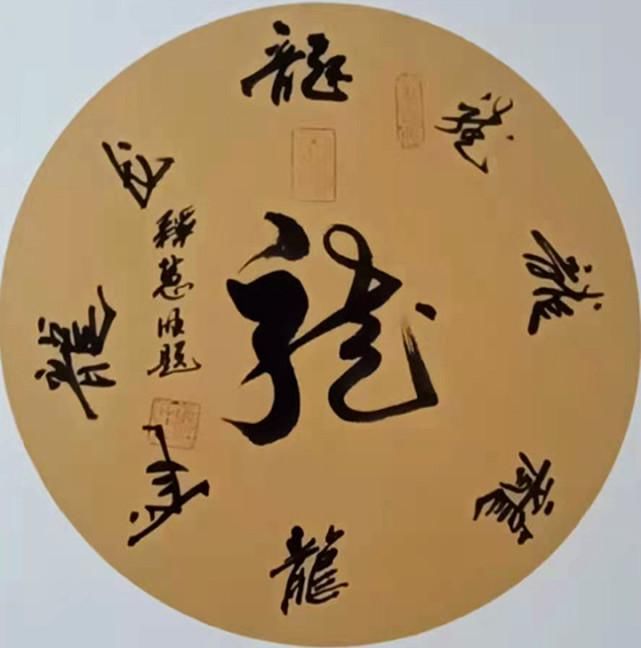 龍
龍
龍
龍
龍
龍
龍
龍
龍
釋慧
題